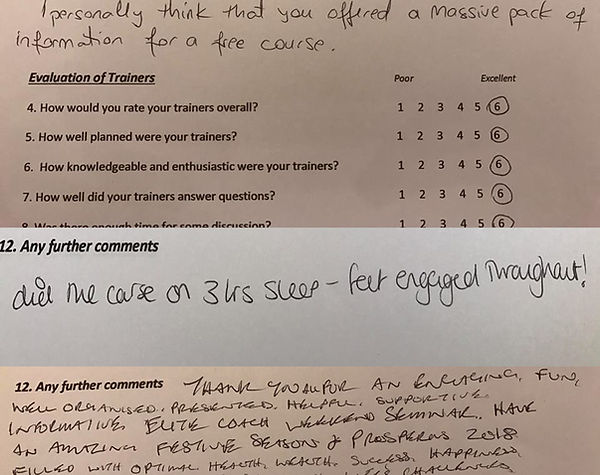 I personally think that you offered a massive pack of
information for a free course.
Evaluation of Trainers Poor Excellent
4. How would you rate your trainers overall? 1 2 3 4 5 6
5. How well planned were your trainers? 1 2 3 4 5 6
6. How knowledgeable and enthusiastic were your trainers? 1 2 3 4 5 6
7. How well did your trainers answer questions? 1 2 3 4 5 6
8. Was there enough time for some discussion? 1 2 3 4 5 6
12. Any further comments
did the corse on 3 hrs sleep - feet engaged throughout!
12. Any further comments THANK YOU ALL FOR AN ENGAGING, FUN,
WELL ORGANISED, PRESENTED, HELPFUL, SUPPORTIVE
INFORMATIVE, ELITE COACH WEEKEND SEMINAR. HAVE
AN AMAZING FESTIVE SEASON & PROSPEROUS 2018
FILLED WITH OPTIMAL HEALTH, WEALTH, SUCCESS, HAPPINESS,
CHALLENGES